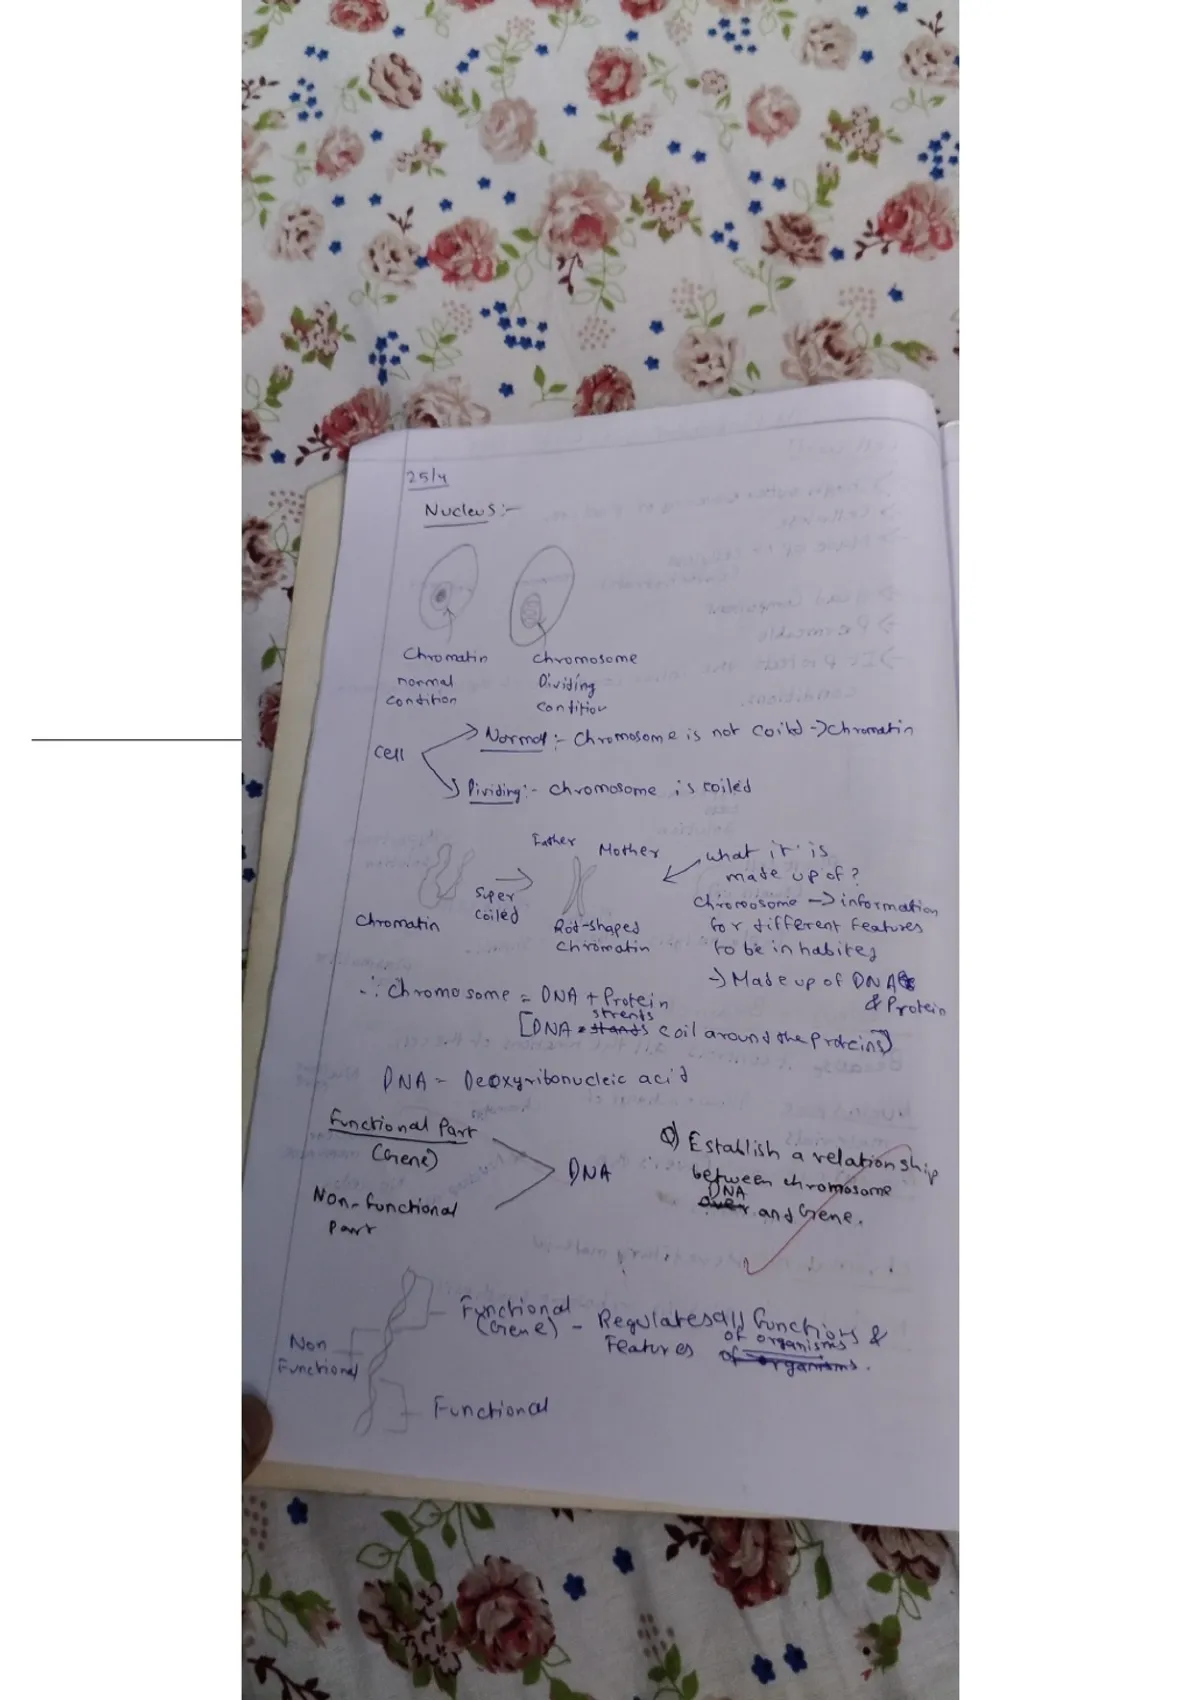 25/4
Nucleus:-
Chromatin
normal
condition
chromosome
Dividing
condition
Cell
Normal:- Chromosome is not coiled -> chromatin
Dividing:- chromosome is coiled
Father
Mother
Chromatin
Super
coiled
Rod-shaped
chromatin
what it is
made up of?
Chromosome -> information
for different features
to be inhabited
-> Made up of DNA
& Protein
∴ Chromosome = DNA + Protein
[DNA strends coil around the Proteins]
DNA - Deoxyribonucleic acid
Functional Part
(Gene)
Non-functional
Part
DNA
Q) Establish a relationship
between chromosome
DNA
and Gene.
Functional
(Gene) - Regulates all functions &
Features of organisms
of organisms.
Non
Functional
Functional